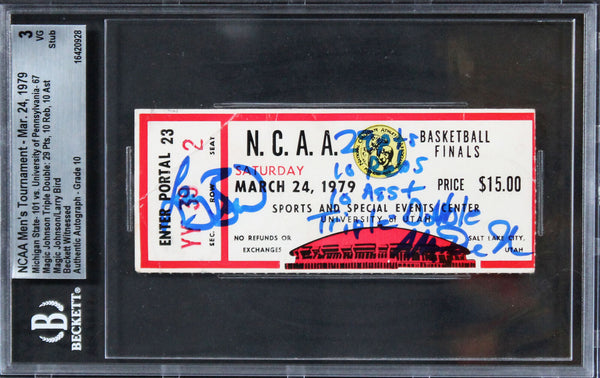 NCAA Men's Tournament - Mar. 24, 1979
Michigan State- 101 vs. University of Pennsylvania- 67
Magic Johnson Triple Double: 29 Pts, 10 Reb, 10 Ast
Magic Johnson/Larry Bird
Beckett Witnessed
Authentic Autograph - Grade 10
3
VG
Stub
16420928
B
BECKETT
ENTER PORTAL 23
YY 39 2
SEC. ROW SEAT
N.C.A.A.
BASKETBALL
FINALS
SATURDAY
MARCH 24, 1979
PRICE $15.00
SPORTS AND SPECIAL EVENTS CENTER
UNIVERSITY OF UTAH
NO REFUNDS OR
EXCHANGES
SALT LAKE CITY,
UTAH
29 pts
10 Rebs
10 Asst
Triple Double